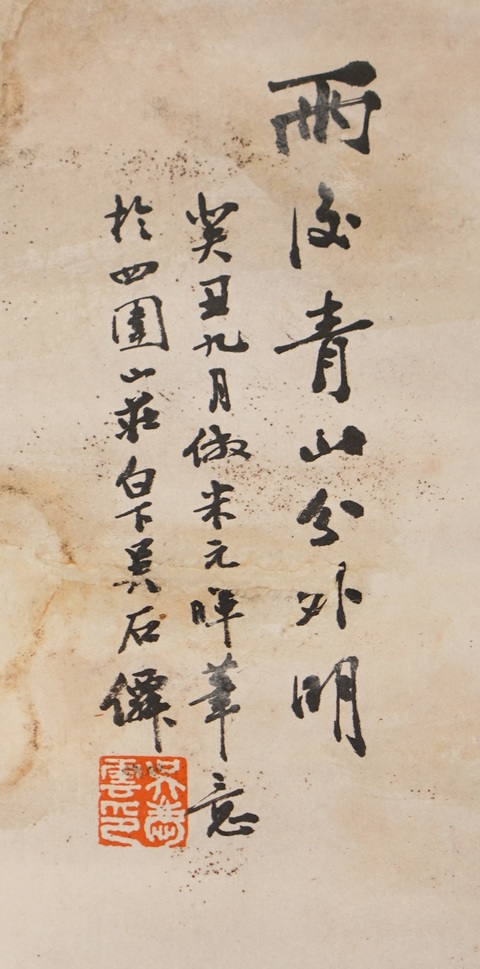 雨後青山分外明
癸丑九月倣米元暉筆意
於四圍山莊白下吳石僊
吳慶雲印